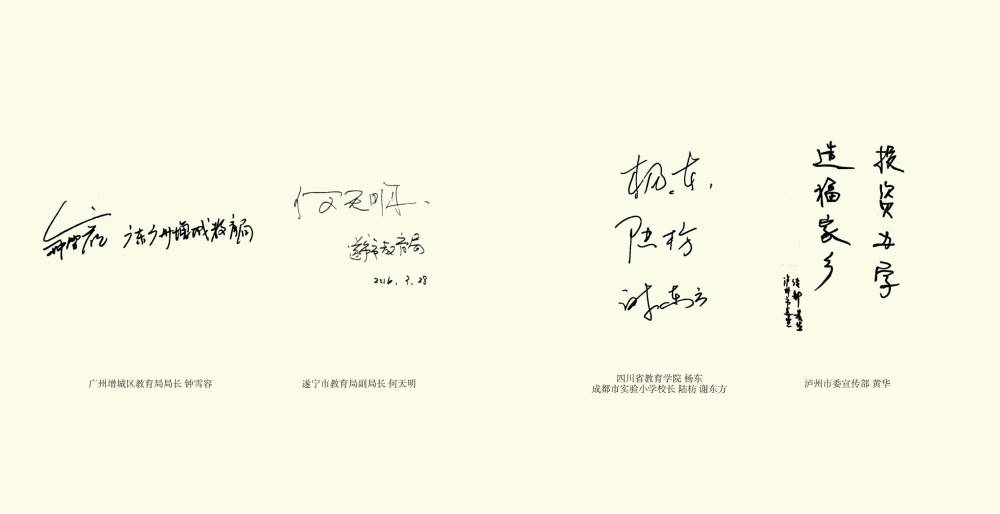 广州增城教育局
何天明
遂宁市教育局
2016.7.28
杨东
陆枋
谢东方
投资办学
造福家乡
广州增城区教育局局长 钟雪容
遂宁市教育局副局长 何天明
四川省教育学院 杨东
成都市实验小学校长 陆枋 谢东方
泸州市委宣传部 黄华